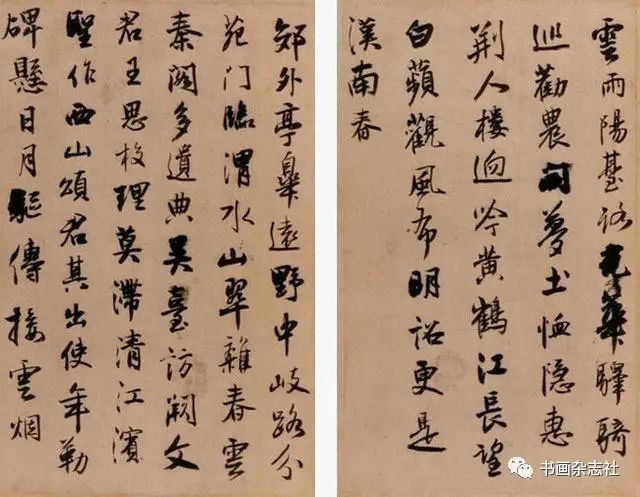 雲雨陽臺路光華驛騎
巡勸農開夢土恤隱惠
荆人樓迥吟黄鶴江長望
白蘋觀風布明詔更是
漢南春
郊外亭臯遠野中岐路分
苑门臨渭水山翠雜春雲
秦閣多遺典吴臺訪闕文
君王思校理莫滯清江濱
聖作西山頌君其出使年勒
碑懸日月驅傳接雲烟
书画杂志社